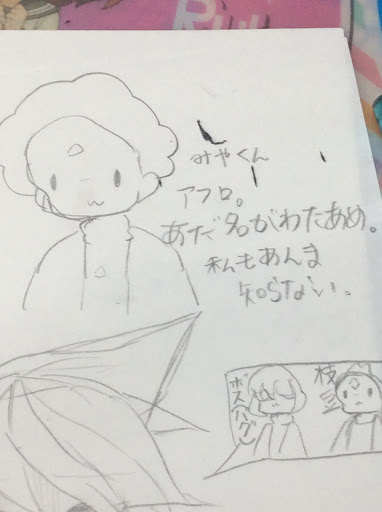 みやくん
アフロ。
あだ名がわたあめ。
私もあんま
知らない。
枝豆